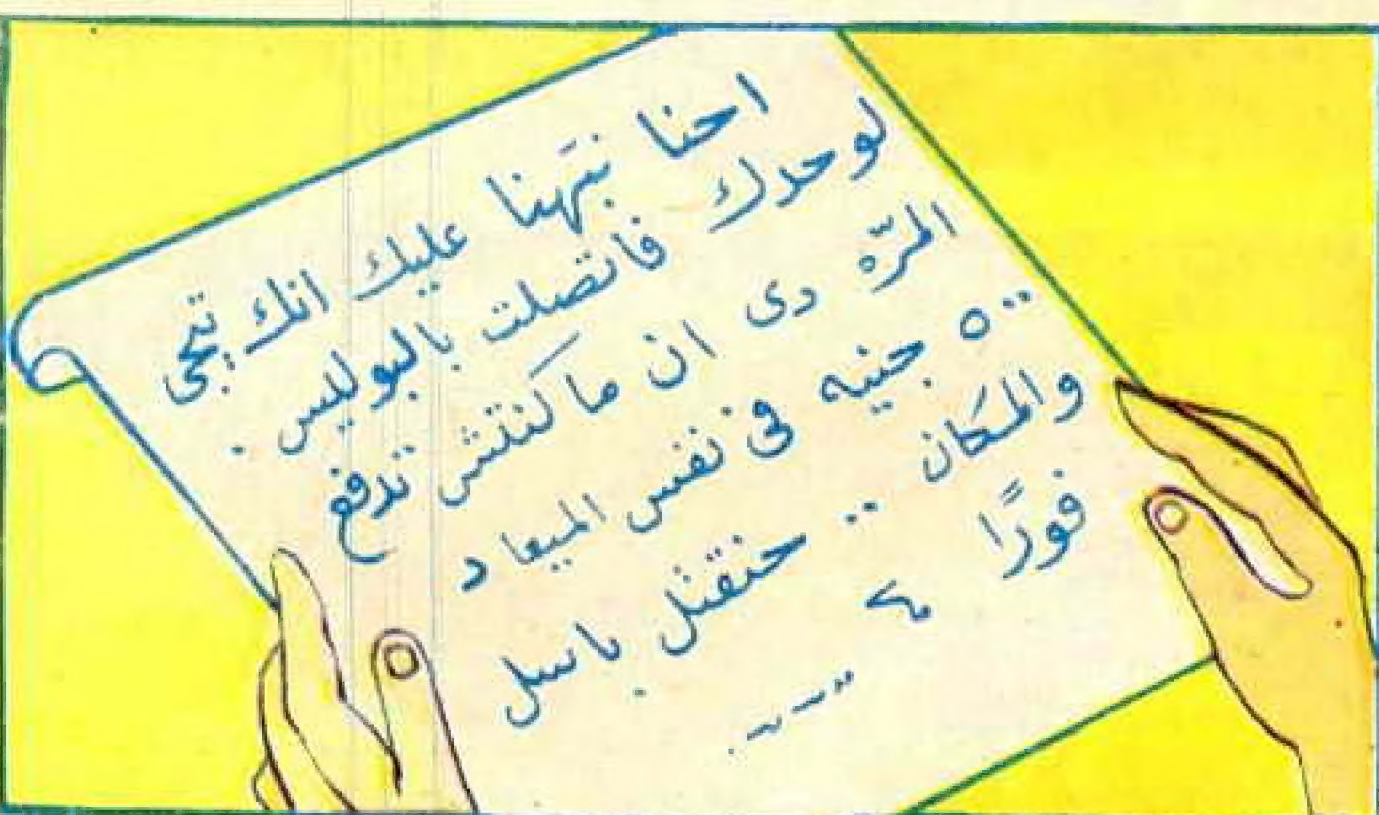 احنا نبّهنا عليك انك تيجى
لوحدك فاتصلت بالبوليس .
المرّه دى ان ما كنتش تدفع
٥٠٠ جنيه فى نفس الميعاد
والمكان .. حنقتل باسل
فورًا